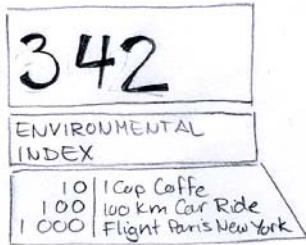 342
ENVIRONMENTAL
INDEX
10 | 1 Cup Caffe
100 | 100 km Car Ride
1 000 | Flight Paris New York